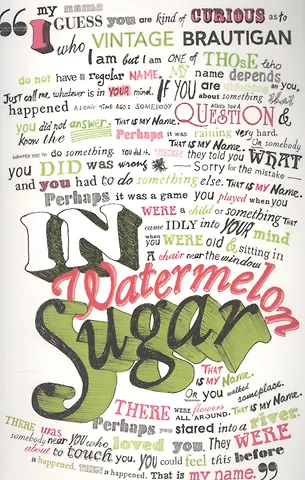 “ my name
I GUESS you are kind of CURIOUS as to
who VINTAGE BRAUTIGAN
I am but I am ONE of THOSE who
do not have a regular NAME. My name depends on you.
Just call me whatever is in YOUR mind. If YOU are thinking
about something that
happened A LONG TIME AGO: SOMEBODY ASKED YOU A QUESTION &
you did not know the answer. THAT IS MY NAME.
Perhaps it was raining very hard.
THAT IS MY NAME. Or somebody
WANTED YOU to do something. YOU did it. THEN they told you WHAT
YOU DID was wrong – Sorry for the mistake –
and you had to do something else. THAT IS MY NAME.
Perhaps it was a game you played when you
WERE a child or something THAT
came IDLY into YOUR mind
when you WERE old & sitting in
A chair near the window
IN
Watermelon
Sugar
THAT
IS MY Name.
OR you walked someplace.
THERE WERE flowers ALL AROUND. THAT IS MY Name.
Perhaps you stared into a river.
THERE was
somebody near YOU who loved you. They WERE
about to touch you. YOU could feel this before
it happened. THEN it happened. That is my name. ”